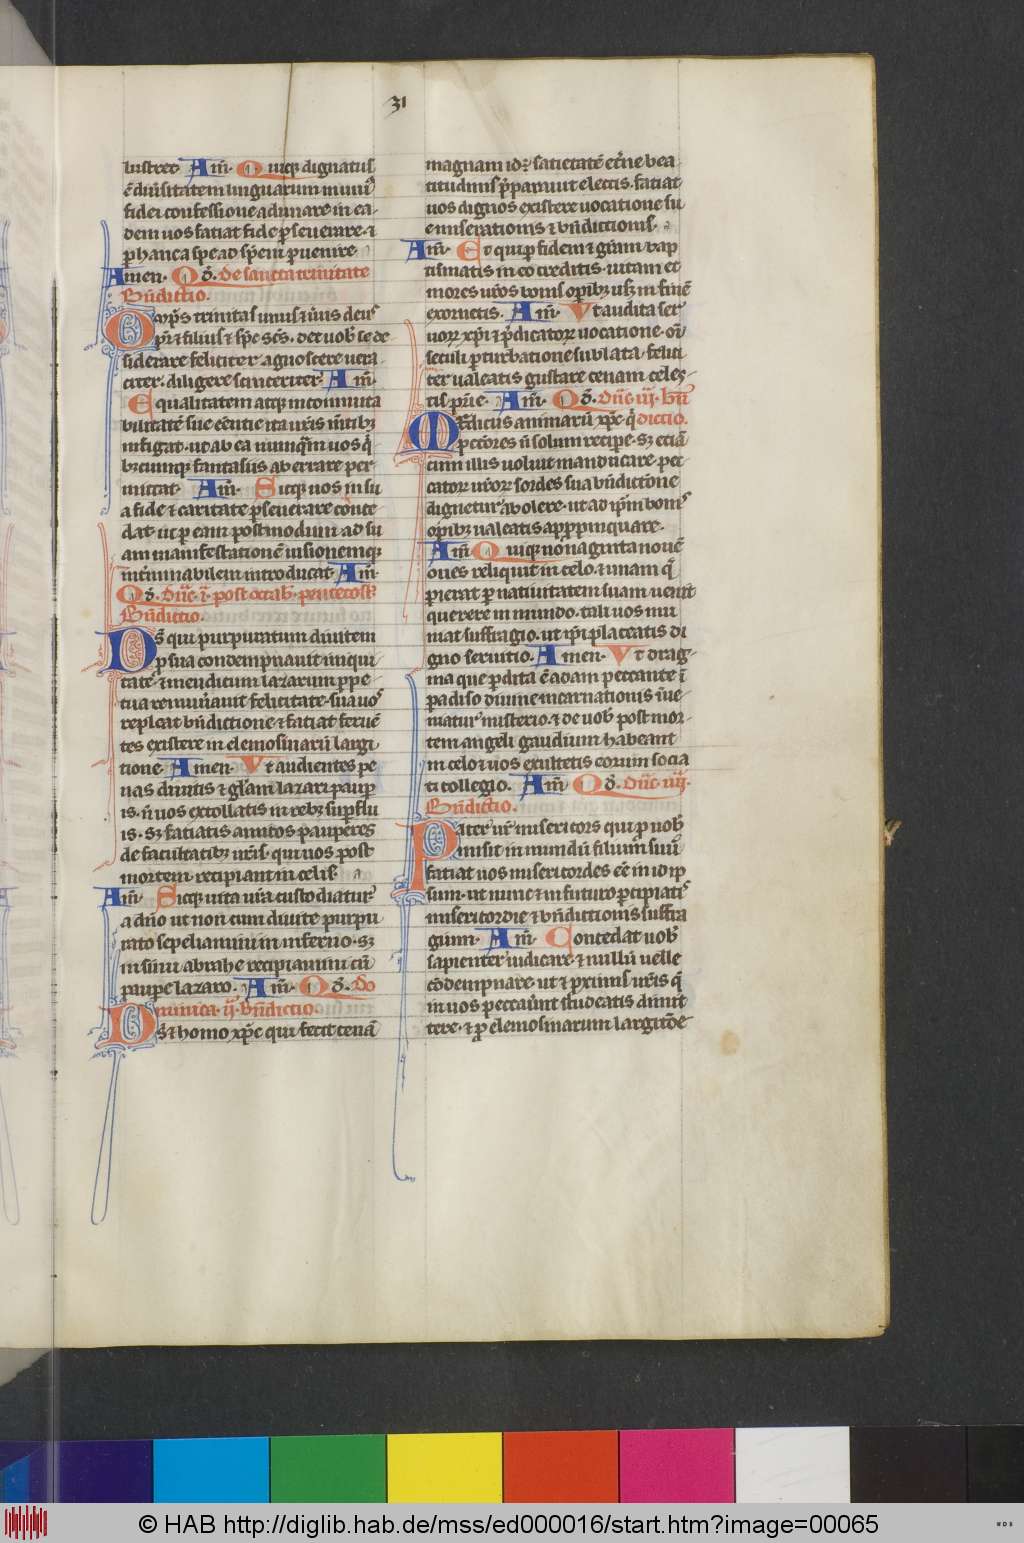 31
lustret Am̄. Quiq; dignatus
ē diu̾sitatem linguarum in unī
fidei confessione adunare in ea-
dem uos faciat fide ꝑseuerare ⁊
ꝑ hanc a spe ad speciē ꝑuenire
Amen. Qd̄. de sancta trinitate
Bn̄dictio.
Omp̄s trinitas unus ⁊ uer̾ deus
pr̄ ⁊ filius ⁊ spc̄ sc̄s. det uob̾ se de
siderare feliciter. agnoscere uera
citer. diligere scienter. Am̄.
Equalitatem atq; incommuta
bilitatē sue eēntie ita ur̄is mtib;
infigat. ut ab ea nunq̄m uos q̇
b;cumq; fantasiis aberrare per
mittat. Am̄. Sicq; uos in su
a fide ⁊ caritate ꝑseuerare cōce
dat. ut ꝑ eam postmodum ad su
am manifestationē uisionemq;
int̾minabilem introducat. Am̄.
Qd̄. Dn̄c. i. post octab̾. pentecost̾
Bn̄dictio.
Ds̄ qui purpuratum diuitem
ꝓ sua condempnauit iniqui
tate. ⁊ mendicum lazarum ꝑpe
tua remun̾auit felicitate. sua uos
repleat bn̄dictione ⁊ faciat feruē
tes existere in elemosinarū largi
tione. Amen. Vt audientes pe
nas diuitis ⁊ gl̄am lazari paup̱
is. n̄ uos extollatis in reb; suꝑflu
is. s; faciatis amicos pauperes
de facultatib; ur̄is. qui uos post
mortem recipiant in celis.
Am̄. Sicq; uita ur̄a custodiatur
a dn̄o ut non cum diuite purpu
rato sepeliamini in inferno. s;
in sinu abrahe recipiamini cū
paupe lazaro. Am̄. Qd̄. Do
minica. ij. bn̄dictio
Ds̄ ⁊ homo xp̄e qui fecit cenā
magnam id̾ sacietatē et̾ne bea
titudinis p̄parauit electis. faciat
uos dignos existere uocatione su
e miserationis ⁊ bn̄dictionis.
Am̄. Et qui ꝑ fidem ⁊ gr̄am bap
tismatis in eo creditis. uitam et
mores ur̄os bonis oꝑib; us; in finē
exornetis. Am̄. Vt audita ser
uor̾ xp̄i ⁊ p̄dicator̾ uocatione. oī
seculi ꝑturbatione sublata. felici
ter ualeatis gustare cenam celes-
tis pr̄ie. Am̄. Qd̄. Dn̄c iij. bn̄
dictio.
Medicus animarū xp̄c. q̇
peccores n̄ solum recipe. s; eciā
cum illis uoluit manducare. pec
cator̾ ur̄or̾ sordes sua bn̄dictōne
dignetur abolere. ut ad ip̄m bonis
oꝑib; ualeatis appropinquare.
Am̄. Quiq; nonaginta nouē
oues reliquit in celo. ⁊ unam q̄
pierat ꝑ natiuitatem suam uenit
querere in mundo. tali uos mu
niat suffragio. ut ip̄i placeatis di
gno seruitio. Amen. Vt drag-
ma que ꝑdita ē adam peccante ī
padiso diuine incarnationis īue-
niatur misterio. ⁊ de uob̾ post mor-
tem angeli gaudium habeant
in celo ⁊ uos exultetis eorum socia
ti collegio. Am̄. Qd̄. Dn̄c. iiij.
Bn̄dictio.
Pater ur̄ misericors qui ꝓ uob̾
misit in mundū filium suū
faciat uos misericordes eē in id ip̄
sum. ut nunc ⁊ in futuro ꝑcipiatis
misericordie ⁊ bn̄dictionis suffra
gium. Am̄. Concedat uob̾
sapienter iudicare. ⁊ nullū uelle
cōdempnare. ut ⁊ proximis ur̄is q̄
in uos peccau̾int studeatis dimit
tere. ⁊ ꝑ elemosinarum largitōe
© HAB http://diglib.hab.de/mss/ed000016/start.htm?image=00065